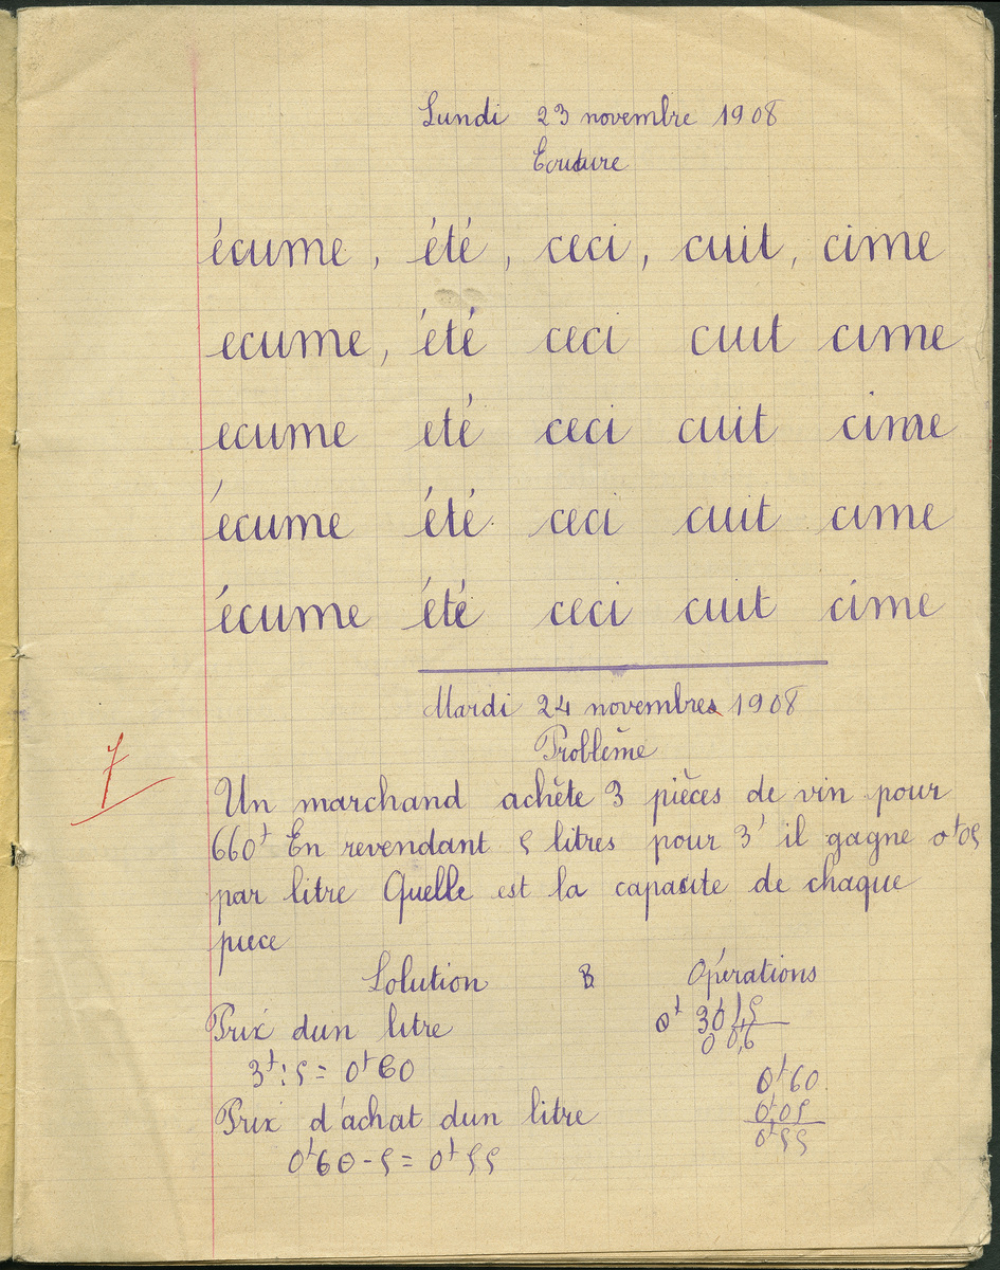 Lundi 23 novembre 1908
Ecriture
écume, été, ceci, cuit, cime
ecume, été ceci cuit cime
ecume eté ceci cuit cime
écume été ceci cuit cime
écume été ceci cuit cime
Mardi 24 novembres 1908
Problème
7
Un marchand achète 3 pièces de vin pour
660f En revendant 5 litres pour 3f il gagne 0f05
par litre Quelle est la capacite de chaque
piece
Solution B Opérations
Prix dun litre 0f 30 5
3f:5 = 0f60 0 0,6
0f60
Prix d'achat dun litre 0f05
0f60-5 = 0f55 0f55